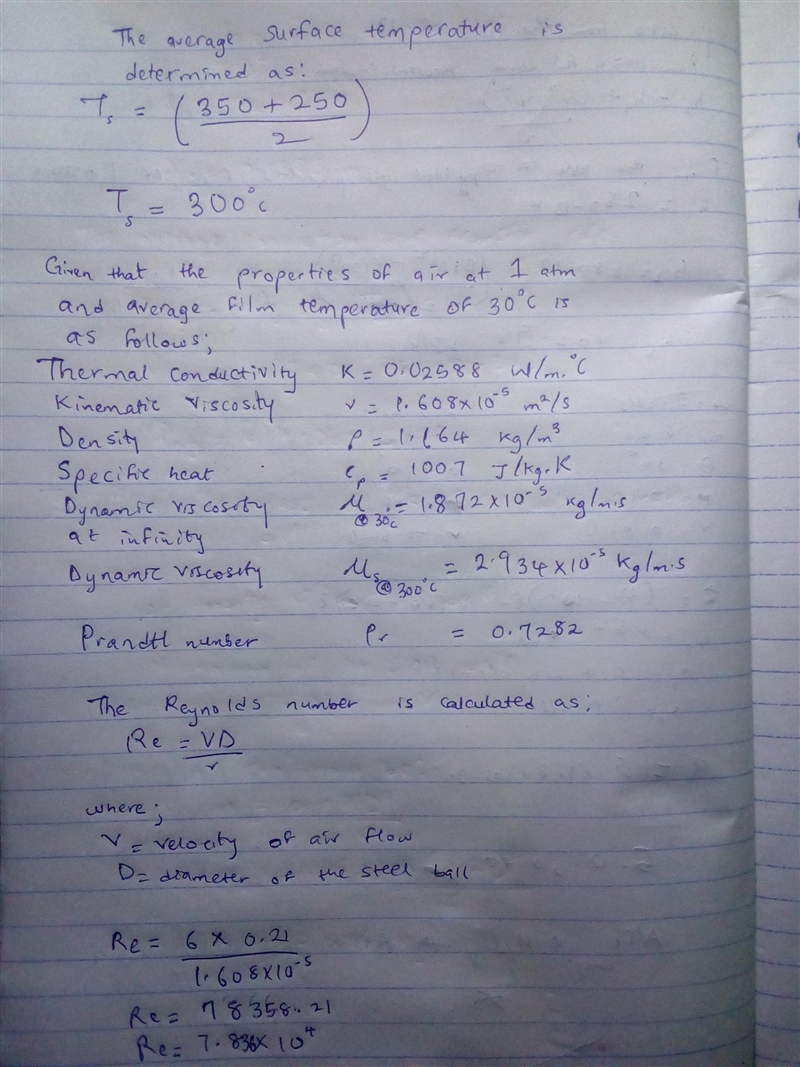 The average surface temperature is
determined as:
T_s = (350 + 250 / 2)
T_s = 300°c
Given that the properties of air at 1 atm
and average film temperature of 30°C is
as follows;
Thermal conductivity K = 0.02588 W/m.°C
Kinematic viscosity v = 1.608×10⁻⁵ m²/s
Density ρ = 1.164 kg/m³
Specific heat c_p = 1007 J/kg.K
Dynamic viscosity μ @ 30°c = 1.872×10⁻⁵ kg/m.s
at infinity
Dynamic viscosity μ_s @ 300°c = 2.934×10⁻⁵ kg/m.s
Prandtl number Pr = 0.7282
The Reynolds number is calculated as;
Re = VD / v
where;
V = velocity of air flow
D = diameter of the steel ball
Re = 6 × 0.21 / 1.608×10⁻⁵
Re = 78358.21
Re = 7.836× 10⁴